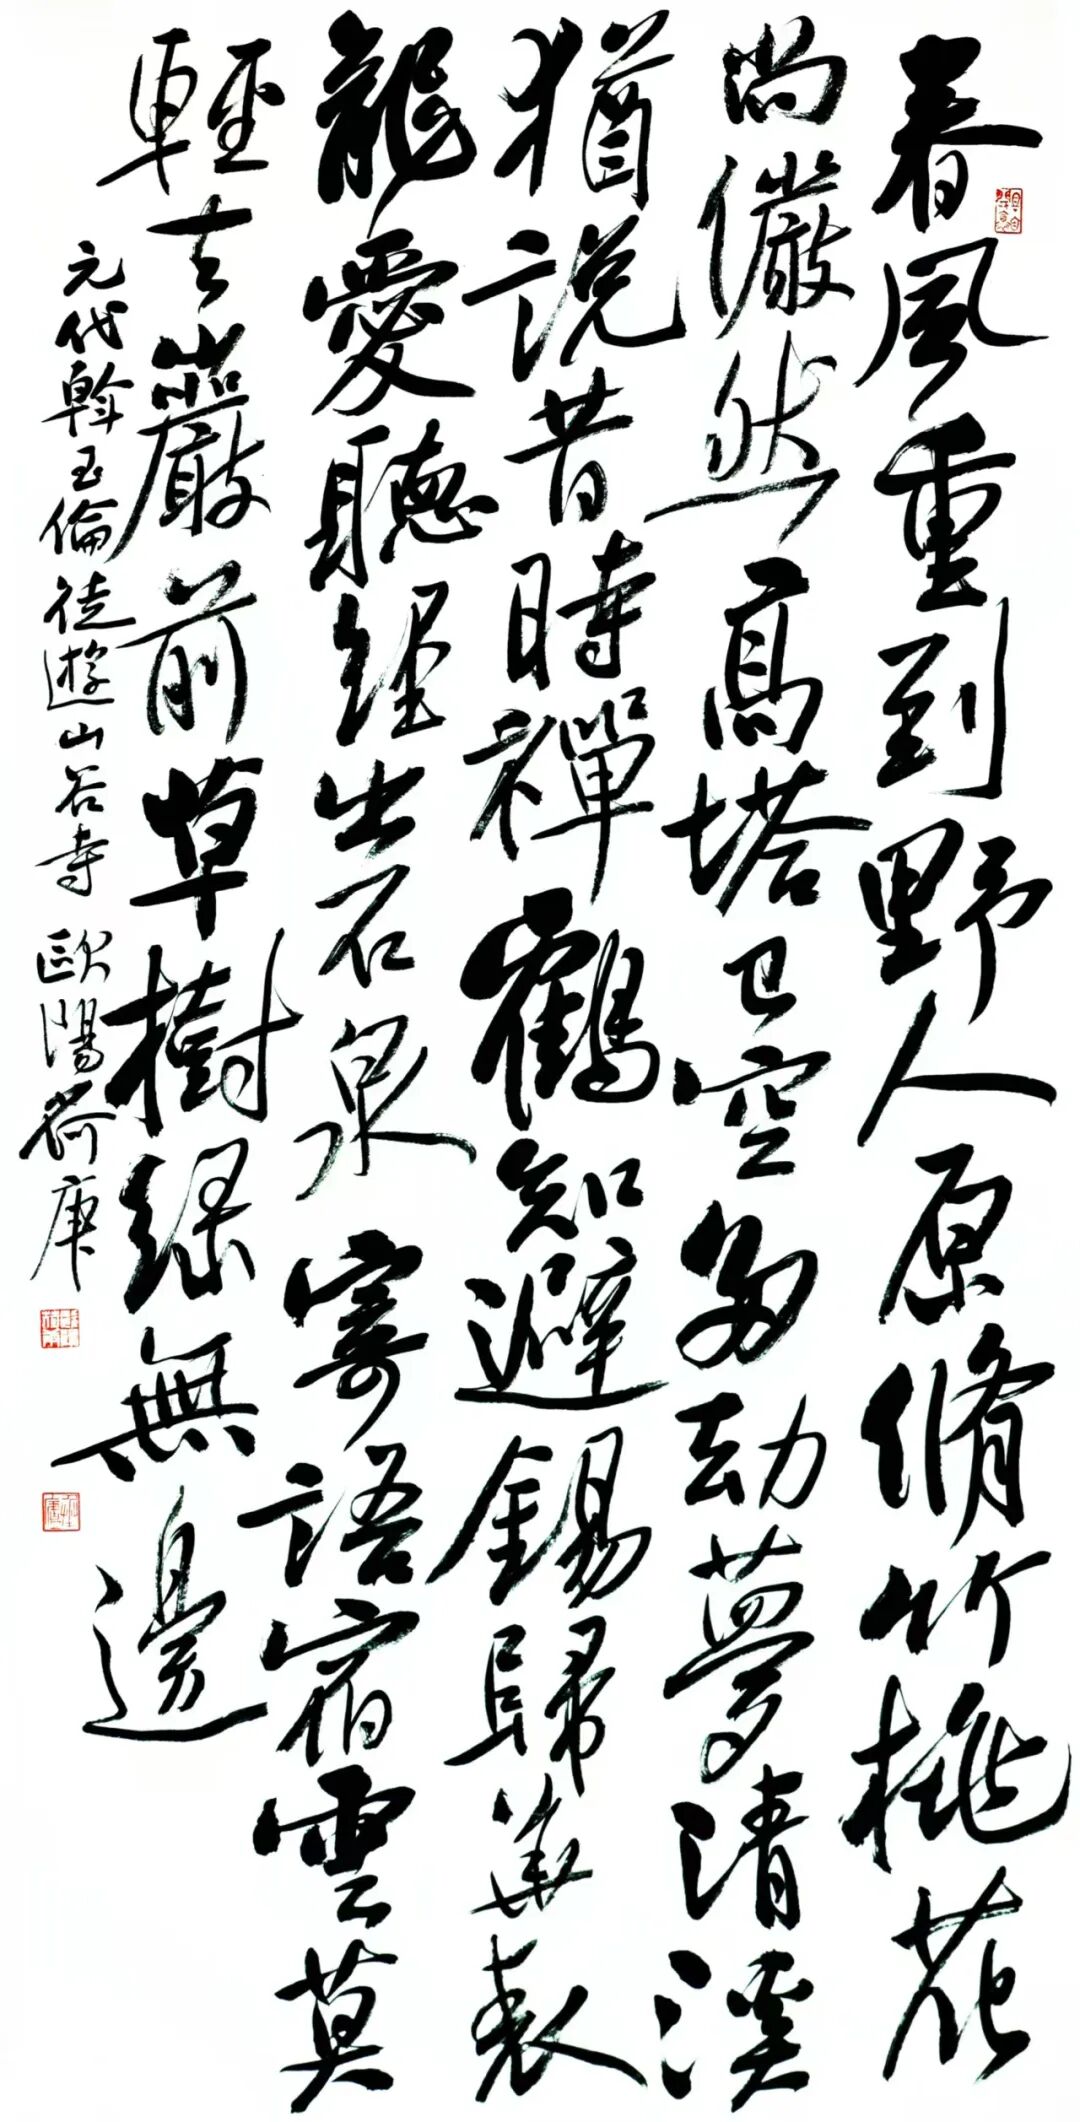 春風重到野人原脩竹桃花
尚儼然高塔已空多劫夢清溪
猶說昔時禪鶴知避錫歸華表
龍愛聽經出石泉寄語宿雲莫
輕去巖前草樹綠無邊
元代斡玉倫徒遊山谷寺 歐陽荷庚